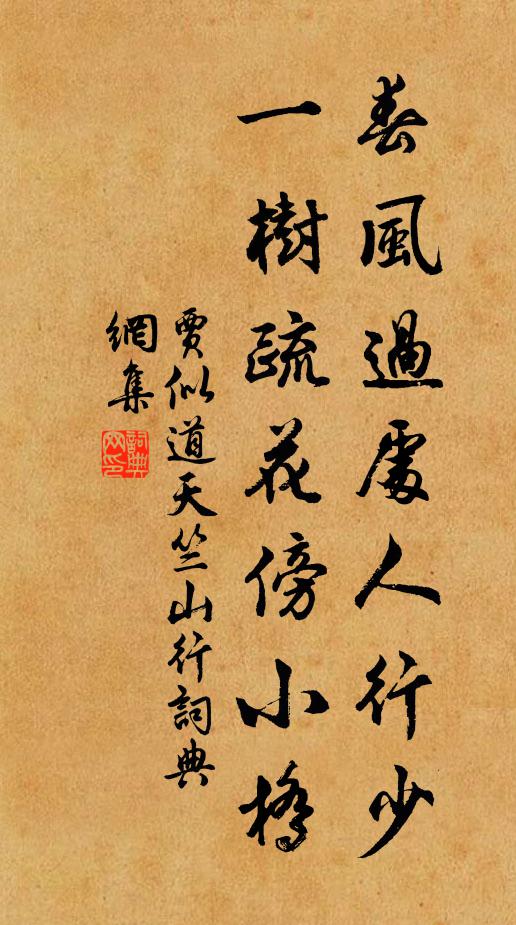 春風過處人行少
一樹疏花傍小橋
賈似道天竺山行詞典
網集
詞典
网印